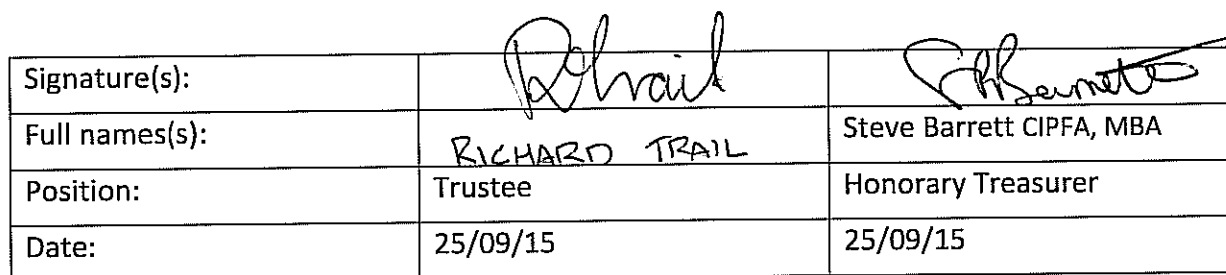 Signature(s): RTrail SBarrett
Full names(s): RICHARD TRAIL Steve Barrett CIPFA, MBA
Position: Trustee Honorary Treasurer
Date: 25/09/15 25/09/15